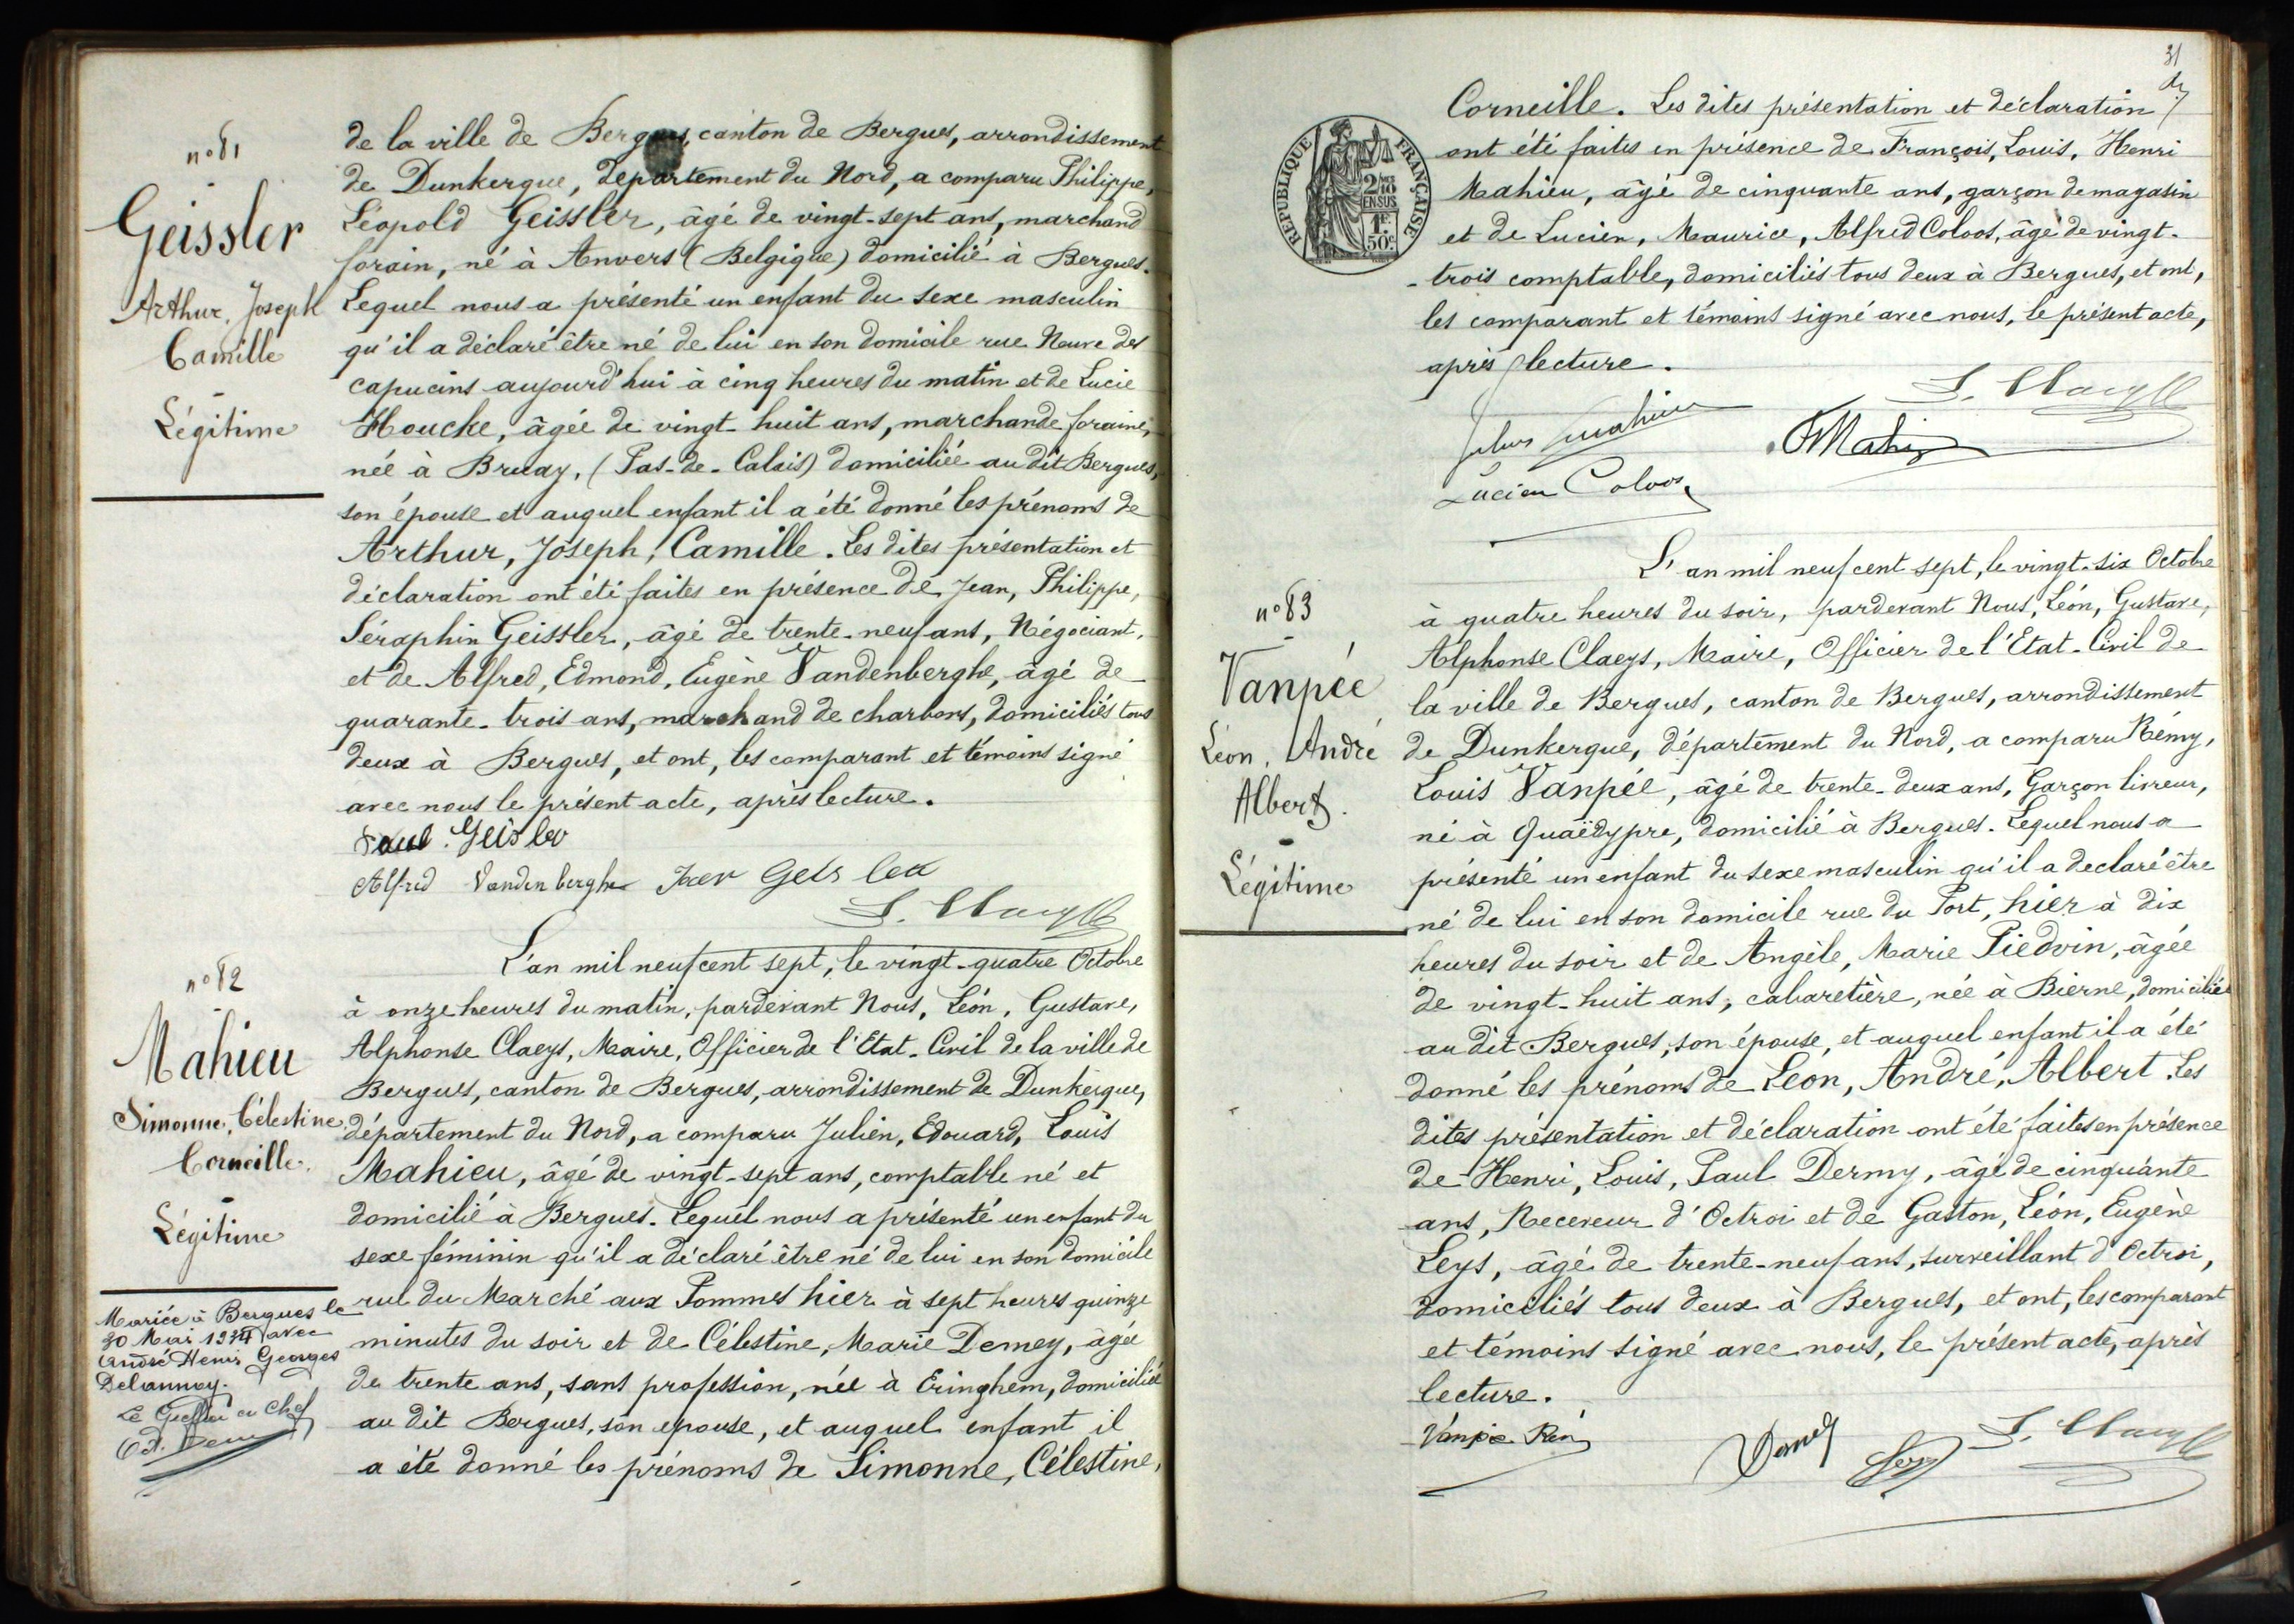 n° 81
Geissler
Arthur, Joseph
Camille
Légitime
de la ville de Bergues, canton de Bergues, arrondissement
de Dunkerque, département du Nord, a comparu Philippe,
Léopold Geissler, âgé de vingt-sept ans, marchand
forain, né à Anvers (Belgique) domicilié à Bergues.
Lequel nous a présenté un enfant du sexe masculin
qu'il a déclaré être né de lui en son domicile rue Neuve des
capucins aujourd'hui à cinq heures du matin et de Lucie
Houcke, âgée de vingt-huit ans, marchande foraine,
née à Bruay, (Pas-de-Calais) domiciliée au dit Bergues,
son épouse et auquel enfant il a été donné les prénoms de
Arthur, Joseph, Camille. Les dites présentation et
déclaration ont été faites en présence de Jean, Philippe,
Séraphin Geissler, âgé de trente-neuf ans, Négociant,
et de Alfred, Edmond, Eugène Vandenberghe, âgé de
quarante-trois ans, marchand de charbons, domiciliés tous
deux à Bergues, et ont, les comparant et témoins signé
avec nous le présent acte, après lecture.
Geisler
Alfred Vandenberghe Geisler
L. Claeys
n° 82
Mahieu
Simonne, Célestine,
Corneille.
Légitime
Mariée à Bergues le
30 Mai 1931 avec
André Henri Georges
Delannoy.
Le Greffier en Chef
L'an mil neuf cent sept, le vingt-quatre Octobre
à onze heures du matin, pardevant Nous, Léon, Gustave,
Alphonse Claeys, Maire, Officier de l'Etat-Civil de la ville de
Bergues, canton de Bergues, arrondissement de Dunkerque,
département du Nord, a comparu Julien, Edouard, Louis
Mahieu, âgé de vingt-sept ans, comptable né et
domicilié à Bergues. Lequel nous a présenté un enfant du
sexe féminin qu'il a déclaré être né de lui en son domicile
rue du Marché aux Pommes hier à sept heures quinze
minutes du soir et de Célestine, Marie Demey, âgée
de trente ans, sans profession, née à Eringhem, domiciliée
au dit Bergues, son epouse, et auquel enfant il
a été donné les prénoms de Simonne, Célestine,
31
RÉPUBLIQUE FRANÇAISE
2/10
EN SUS
1F.
50c.
Corneille. Les dites présentation et déclaration
ont été faites en présence de François, Louis, Henri
Mahieu, âgé de cinquante ans, garçon de magasin
et de Lucien, Maurice, Alfred Coloos, âgé de vingt-
-trois comptable, domiciliés tous deux à Bergues, et ont,
les comparant et témoins signé avec nous, le présent acte,
après lecture.
L. Claeys
Mahieu
Lucien Coloos
n° 83
Vanpée
Léon, André
Albert.
Légitime
L'an mil neuf cent sept, le vingt-six Octobre
à quatre heures du soir, pardevant Nous, Léon, Gustave,
Alphonse Claeys, Maire, Officier de l'Etat-Civil de
la ville de Bergues, canton de Bergues, arrondissement
de Dunkerque, département du Nord, a comparu Rémy,
Louis Vanpée, âgé de trente-deux ans, Garçon livreur,
né à Quaëdypre, domicilié à Bergues. Lequel nous a
présenté un enfant du sexe masculin qu'il a declaré être
né de lui en son domicile rue du Port, hier à dix
heures du soir et de Angèle, Marie Piedvin, âgée
de vingt-huit ans, cabaretière, née à Bierne, domiciliée
au dit Bergues, son épouse, et auquel enfant il a été
donné les prénoms de Léon, André, Albert. Les
dites présentation et déclaration ont été faites en présence
de Henri, Louis, Paul Dermy, âgé de cinquante
ans, Receveur d'Octroi et de Gaston, Léon, Eugène
Leys, âgé de trente-neuf ans, surveillant d'Octroi,
domiciliés tous deux à Bergues, et ont, les comparant
et témoins signé avec nous, le présent acte, après
lecture.
Vanpée
Leys
L. Claeys